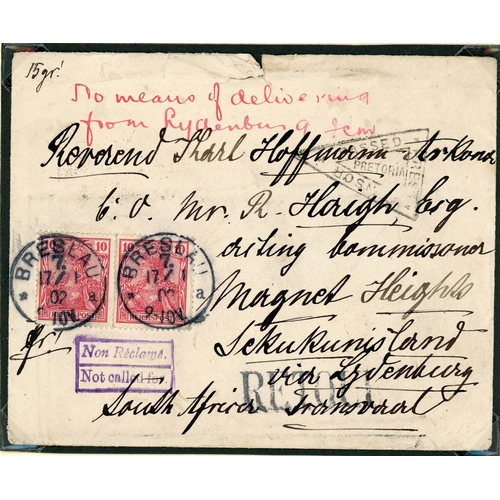 15 gr!
No means of delivering
from Lydenburg
Reverend Karl Hoffmann Arkona
PASSED
PRETORIA
c. o. Mr. R. Haigh, Esq.
acting commissioner
Magnet Heights
Sekukunisland
via Lydenburg
South Africa Transvaal
10 10
BRESLAU
7.
17/1
02
* a
BRESLAU
7.
17/1
02
* a
REICHSPOST
Non Réclamé.
Not called for.
RETOUR